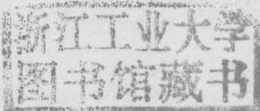 浙江工业大学
图书馆藏书